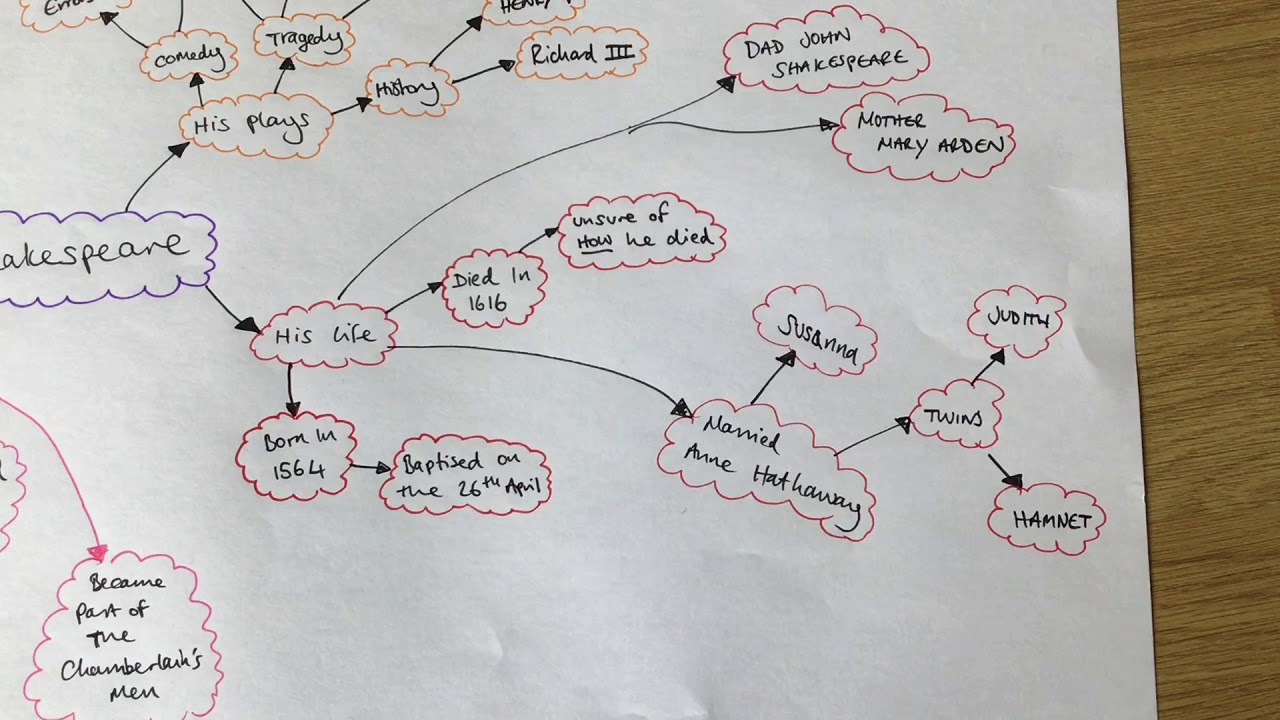 Comedy
Tragedy
HENRY
Richard III
History
His plays
DAD JOHN
SHAKESPEARE
MOTHER
MARY ARDEN
akespeare
unsure of
HOW he died
Died In
1616
His life
Susanna
JUDITH
TWINS
HAMNET
Married
Anne Hathaway
Born In
1564
Baptised on
the 26th April
Became
part of
The
Chamberlain's
Men